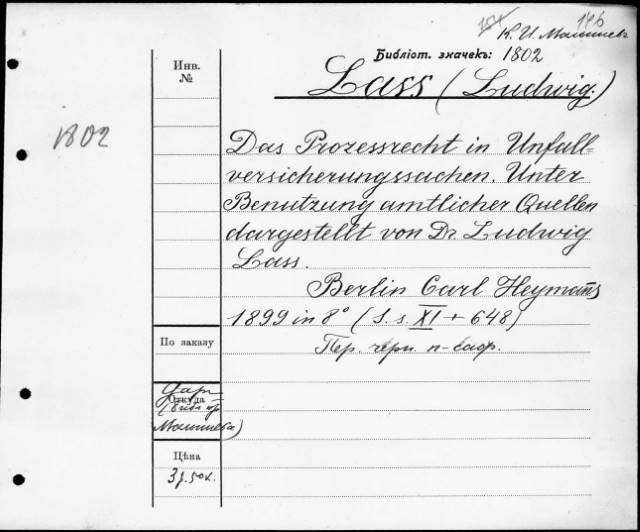 146
К. И. Малышевъ
Библіот. значекъ: 1802
Lass (Ludwig.)
Инв.
№
1802
Das Prozessrecht in Unfall=
versicherungssachen. Unter
Benutzung amtlicher Quellen
dargestellt von Dr. Ludwig
Lass.
Berlin Carl Heymanns
1899 in 8° (S. s. XI + 648)
По заказу
Пер. черн. п-саф.
Даръ
Откуда
Малышева)
Цѣна
3 р. 50 к.